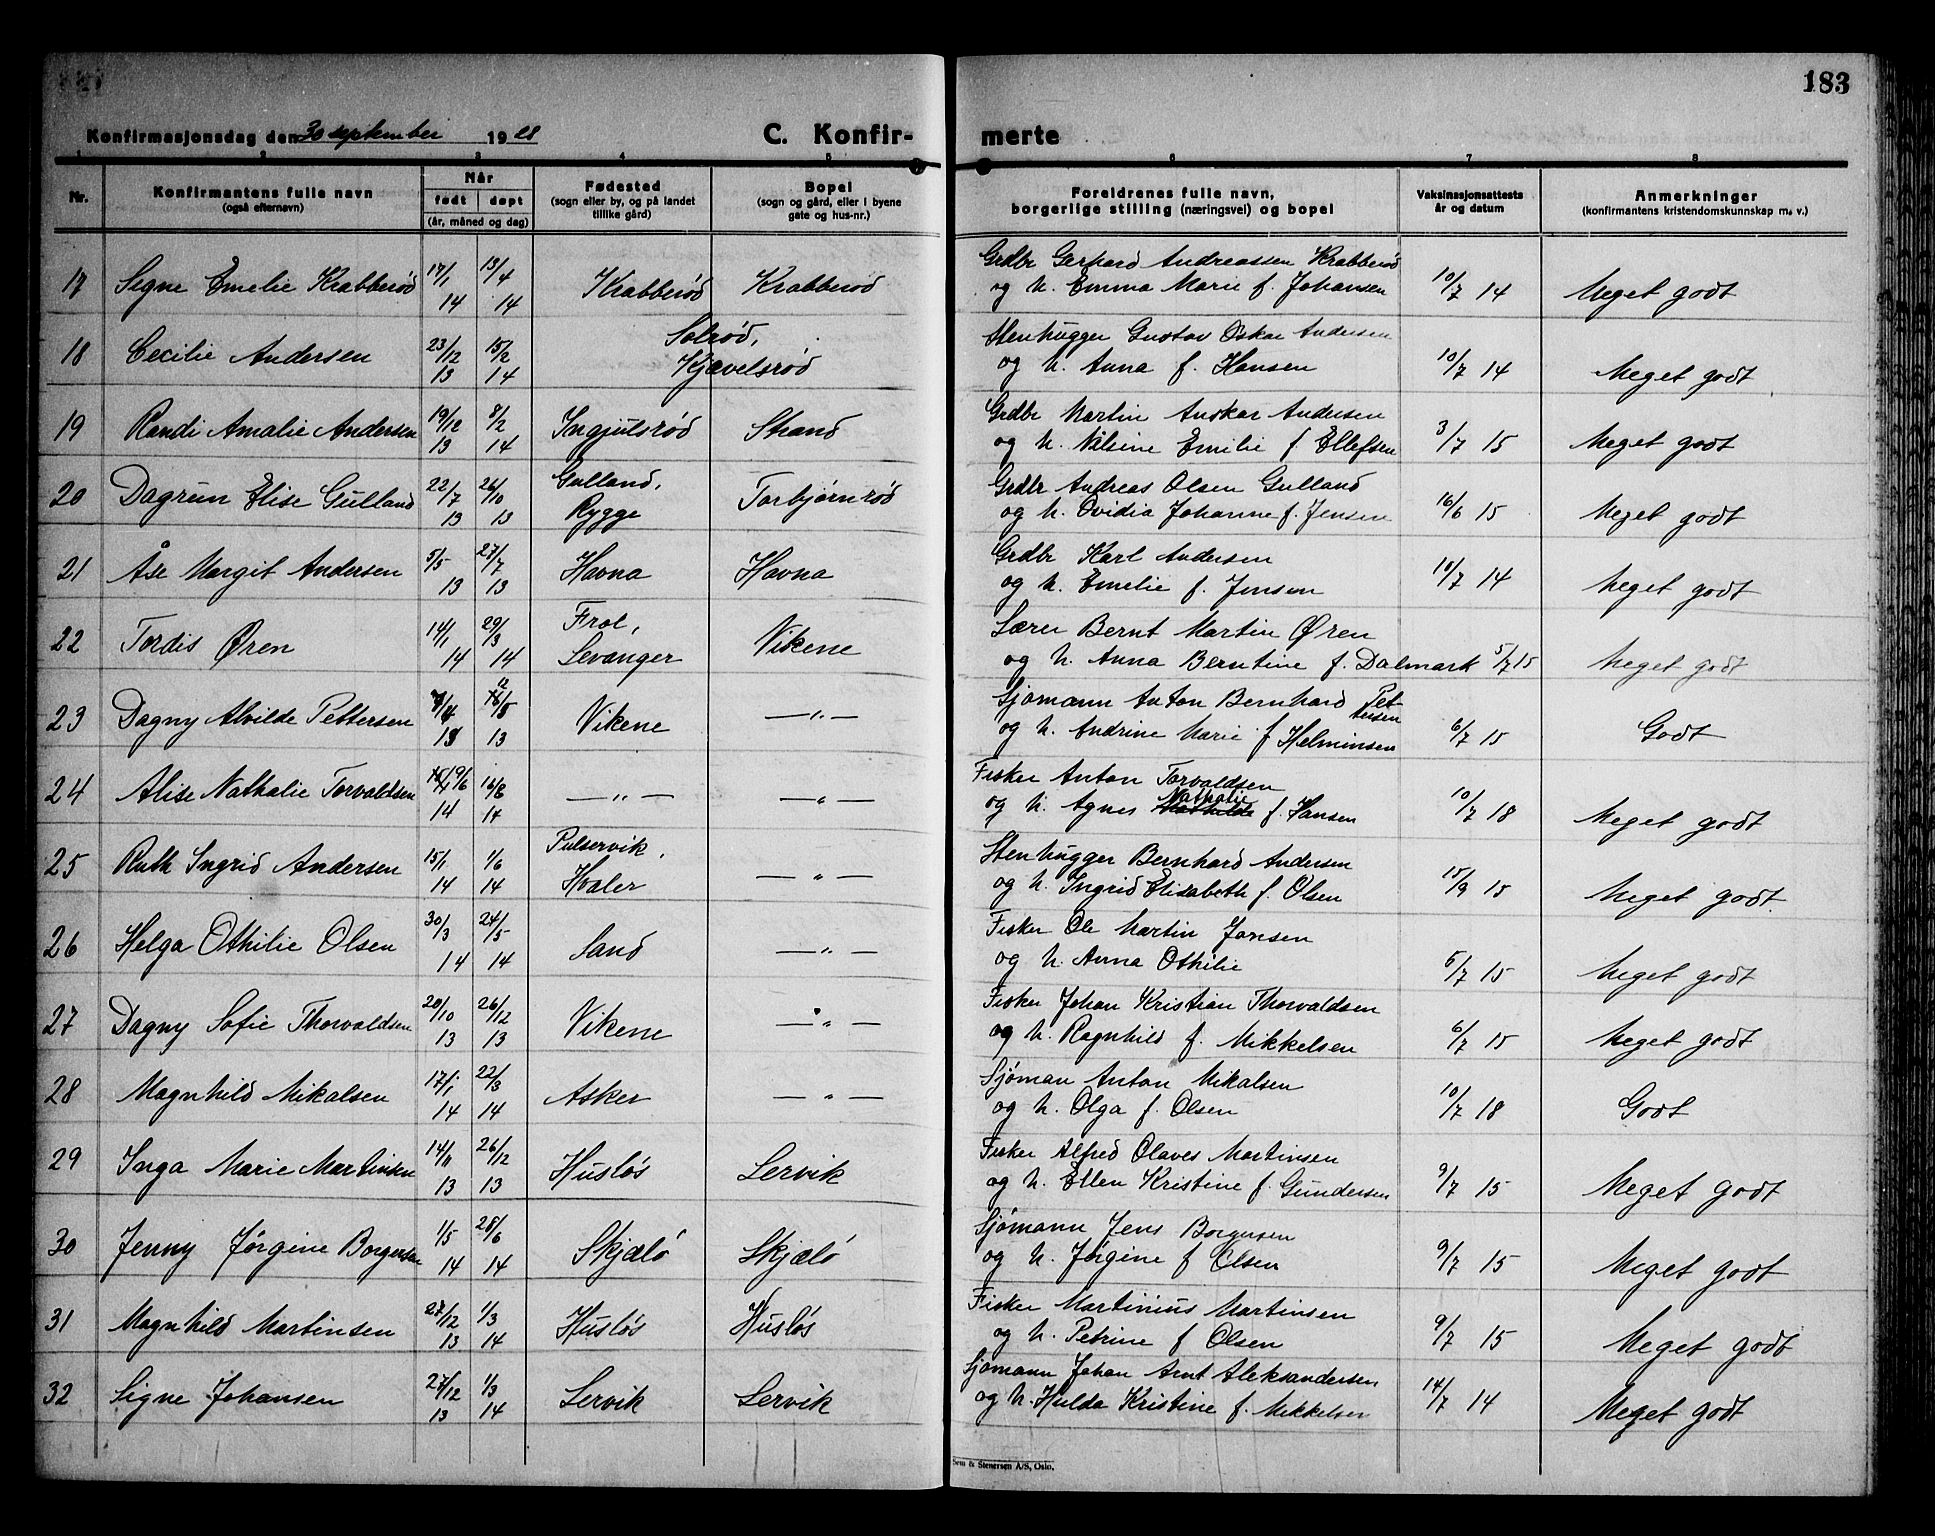 183
Konfirmasjonsdag den 30 september 1928 C. Konfir- merte
1 2 3 4 5 6 7 8
Nr. Konfirmantens fulle navn (også efternavn) Når født døpt (år, måned og dag) Fødested (sogn eller by, og på landet tillike gård) Bopel (sogn og gård, eller i byene gate og hus-nr.) Foreldrenes fulle navn, borgerlige stilling (næringsvei) og bopel Vaksinasjonsattests år og datum Anmerkninger (konfirmantens kristendomskunnskap m. v.)
17 Signe Emelie Krabberød 17/1 14 13/4 14 Krabberød Krabberød Grdbr Gerhard Andreassen Krabberød
og h. Emma Marie f. Johansen 10/7 14 Meget godt
18 Cecilie Andersen 23/12 13 15/2 14 Solrød, Kjævelsrød Stenhugger Gustav Oskar Andersen
og h. Anna f. Hansen 10/7 14 Meget godt
19 Randi Amalie Andersen 19/12 13 8/2 14 Ingjulsrød Strand Grdbr Martin Anskar Andersen
og h. Nilsine Emilie f Ellefsen 3/7 15 Meget godt
20 Dagrun Elise Gulland 22/7 13 26/10 13 Gulland, Rygge Torbjørnrød Grdbr Andreas Olsen Gulland
og h. Ovidia Johanne f. Jensen 16/6 15 Meget godt
21 Åse Margit Andersen 5/5 13 27/7 13 Havna Havna Grdbr Karl Andersen
og h. Emelie f. Jensen 10/7 14 Meget godt
22 Tordis Øren 14/1 14 29/3 14 Frol, Levanger Vikene Lærer Bernt Martin Øren
og h. Anna Berntine f. Dalmark 5/7 15 Meget godt
23 Dagny Alvilde Pettersen 13 12/5 13 Vikene —"— Sjømann Anton Bernhard Pettersen
og h. Andrine Marie f Helminsen 6/7 15 Godt
24 Alise Nathalie Torvaldsen 9/6 14 16/8 14 —"— —"— Fisker Anton Torvaldsen
og h. Agnes Nathalie f. Hansen 10/7 18 Meget godt
25 Ruth Ingrid Andersen 15/1 14 1/6 14 Pulservik, Hvaler —"— Stenhugger Bernhard Andersen
og h. Ingrid Elisabeth f. Olsen 15/9 15 Meget godt.
26 Helga Othilie Olsen 30/3 14 24/5 14 Sand —"— Fisker Ole Martin Jansen
og h. Anna Othilie 5/7 15 Meget godt
27 Dagny Sofie Thorvaldsen 20/10 13 26/12 13 Vikene —"— Fisker Johan Kristian Thorvaldsen
og h. Ragnhild f. Mikkelsen 6/7 15 Meget godt
28 Magnhild Mikalsen 17/1 14 22/3 14 Asker —"— Sjøman Anton Mikalsen
og h. Olga f. Olsen 10/7 18 Godt
29 Inga Marie Martinsen 14/11 13 26/12 13 Husløs Lervik Fisker Alfred Olaves Martinsen
og h. Ellen Kristine f. Gundersen 9/7 15 Meget godt
30 Jenny Jørgine Borgersen 1/5 14 28/6 14 Skjælø Skjælø Sjømann Jens Borgersen
og h. Jørgine f Olsen 9/7 15 Meget godt
31 Magnhild Martinsen 27/12 13 1/3 14 Husløs Husløs Fisker Martinius Martinsen
og h. Petrine f Olsen 9/7 15 Meget godt
32 Signe Johansen 27/12 13 1/3 14 Lervik Lervik Sjømann Johan Arnt Aleksandersen
og h. Hulda Kristine f. Mikkelsen 14/7 14 Meget godt
Sem & Stenersen A/S, Oslo.